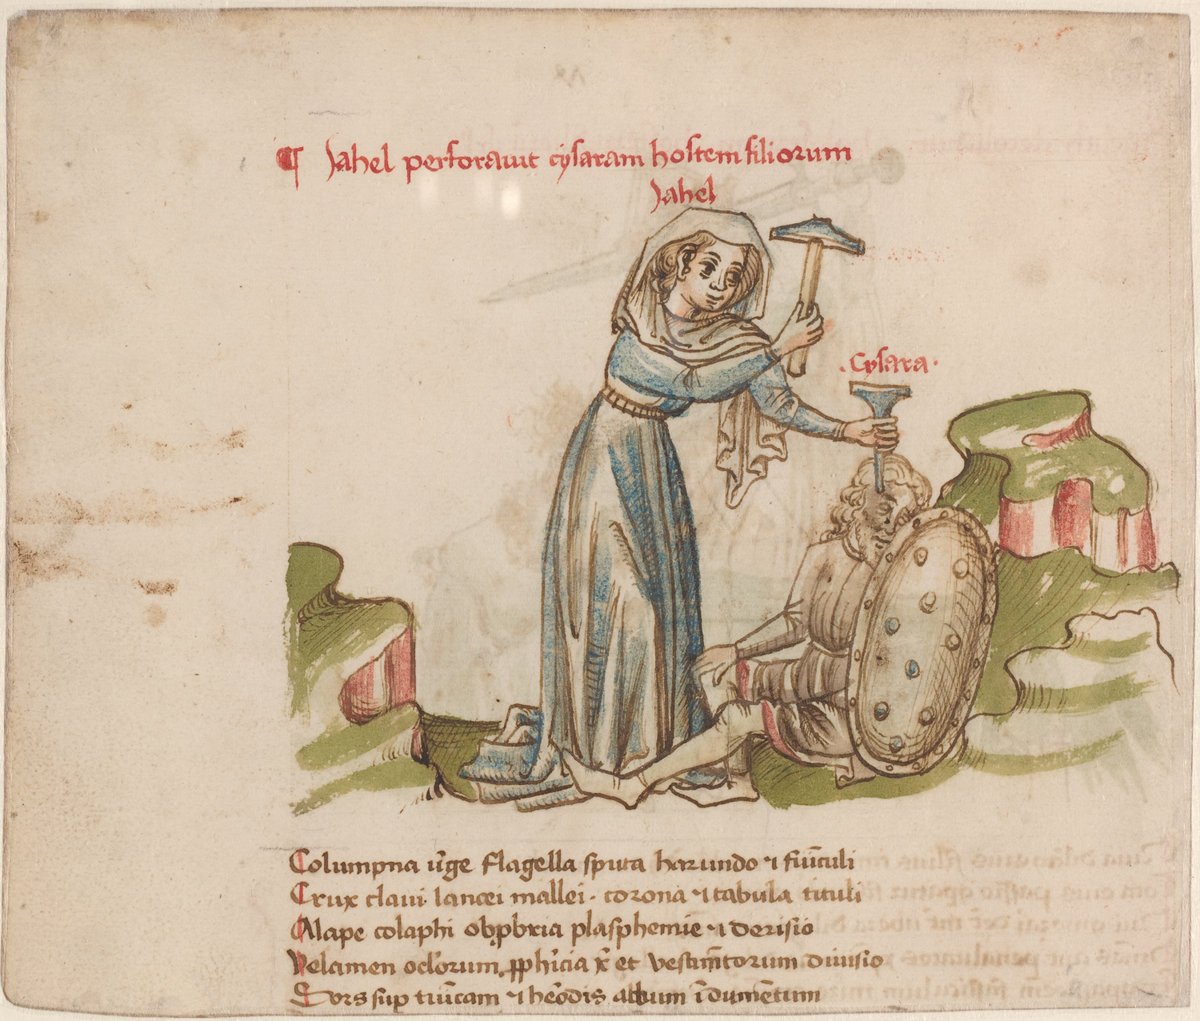 ¶ Jahel perforavit cysaram hostem filiorum
Jahel
. Cysara .
Columpna v̓ge flagella sputa harundo ⁊ fu̅iculi
Crux claui lancei mallei · corona ⁊ tabula tituli
Alape colaphi obp̱bria plasphemie ⁊ derisio
Velamen oclorum, ꝓph̓icia x̅ et vestim̅torum diuisio
Sors sup tu̅icam ⁊ he̅odis album i̅dume̅tum